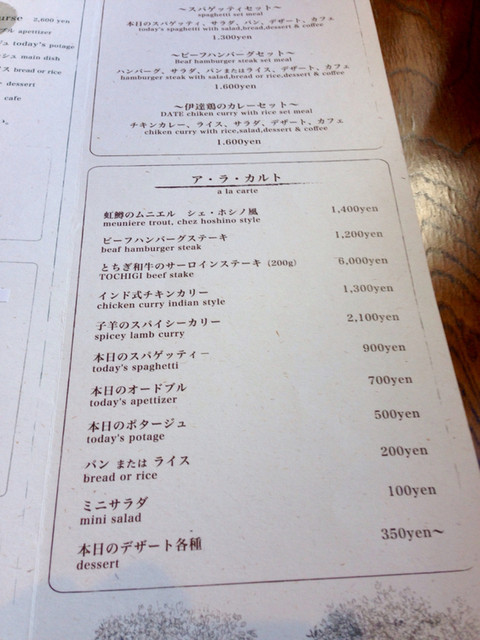 urse 2,600 yen
プル apetizer
ジュ today's potage
シュ main dish
ス bread or rice
dessert
cafe
～スパゲッティセット～
spaghetti set meal
本日のスパゲッティ、サラダ、パン、デザート、カフェ
today's spaghetti with salad,bread,dessert & coffee
1.300yen
～ビーフハンバーグセット～
Beaf hamburger steak set meal
ハンバーグ、サラダ、パンまたはライス、デザート、カフェ
hamburger steak with salad,bread or rice,dessert & coffee
1.600yen
～伊達鶏のカレーセット～
DATE chiken curry with rice set meal
チキンカレー、ライス、サラダ、デザート、カフェ
chiken curry with rice,salad,dessert & coffee
1.600yen
ア・ラ・カルト
a la carte
虹鱒のムニエル シェ・ホシノ風 1,400yen
meuniere trout, chez hoshino style
ビーフハンバーグステーキ 1,200yen
beaf hamburger steak
とちぎ和牛のサーロインステーキ (200g) 6,000yen
TOCHIGI beef stake
インド式チキンカリー 1,300yen
chicken curry indian style
子羊のスパイシーカリー 2,100yen
spicey lamb curry
本日のスパゲッティー 900yen
today's spaghetti
本日のオードブル 700yen
today's apettizer
本日のポタージュ 500yen
today's potage
パン または ライス 200yen
bread or rice
ミニサラダ 100yen
mini salad
本日のデザート各種 350yen～
dessert